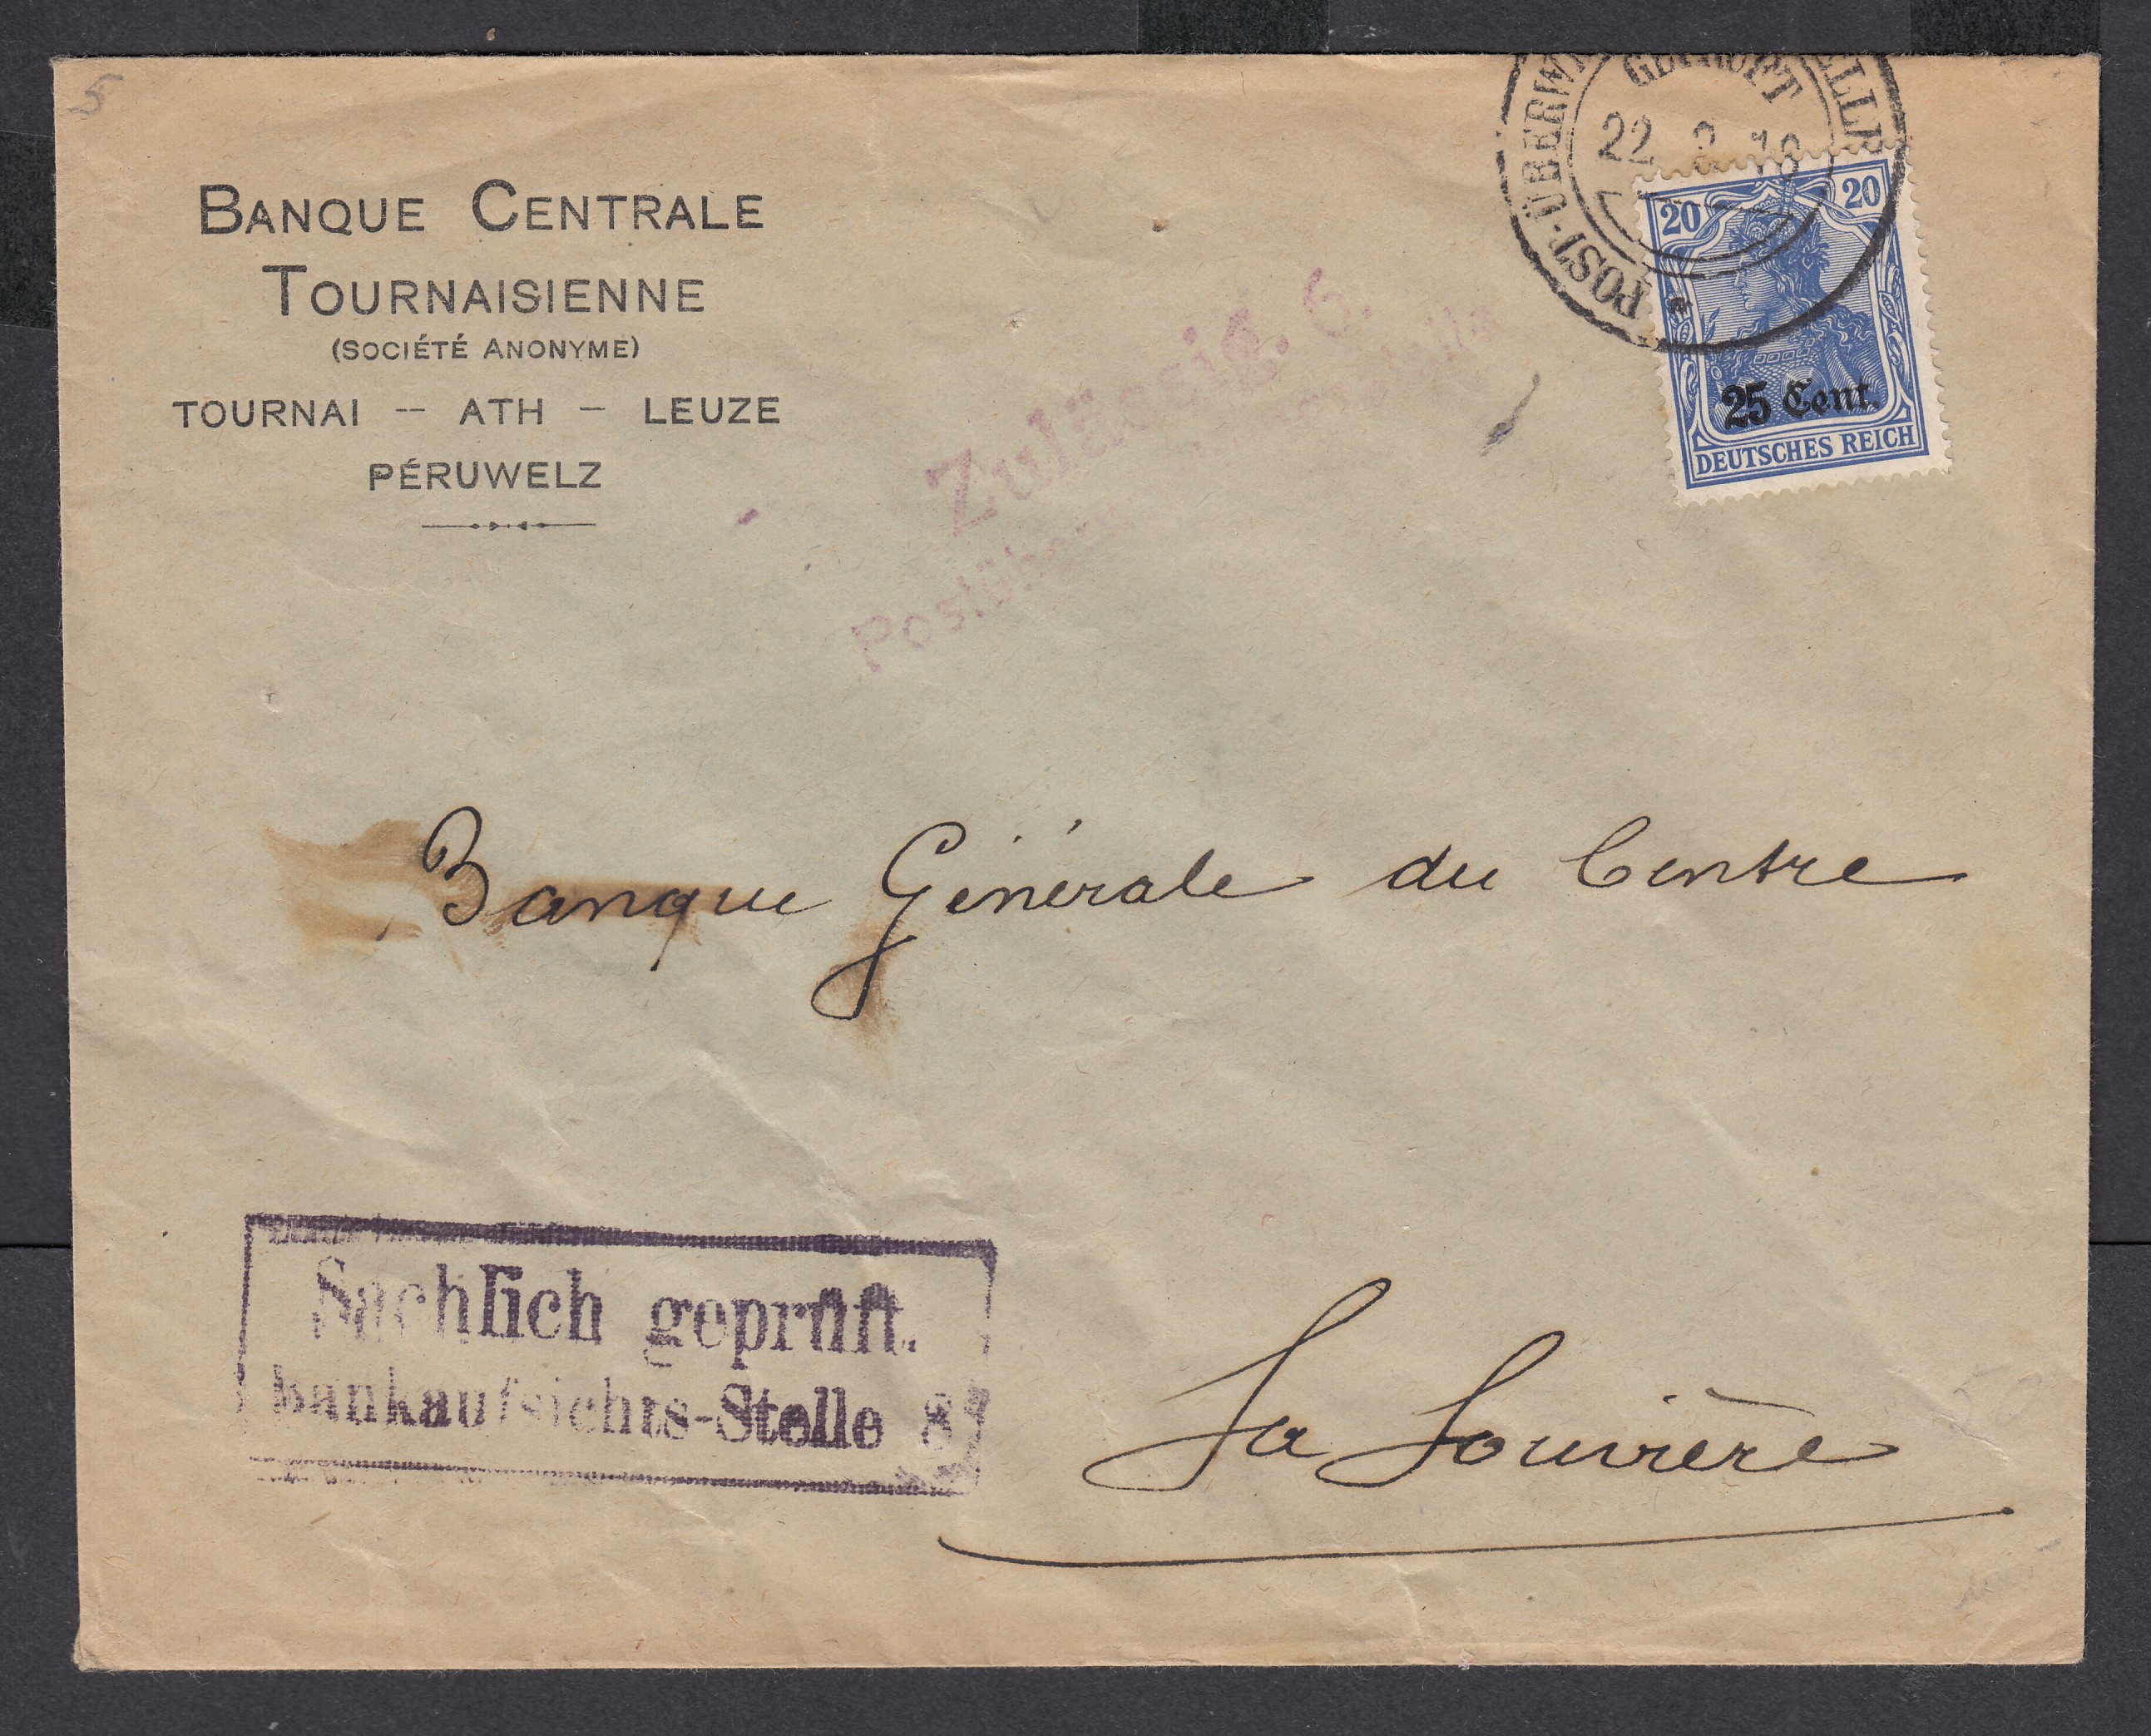 5
BANQUE CENTRALE
TOURNAISIENNE
(SOCIÉTÉ ANONYME)
TOURNAI -- ATH — LEUZE
PÉRUWELZ
POST-ÜBERW
22
20 20
25 Cent.
DEUTSCHES REICH
Zulässig. 6.
Banque Générale du Centre
Sachlich geprüft.
Bankaufsichts-Stelle 8
La Louvière